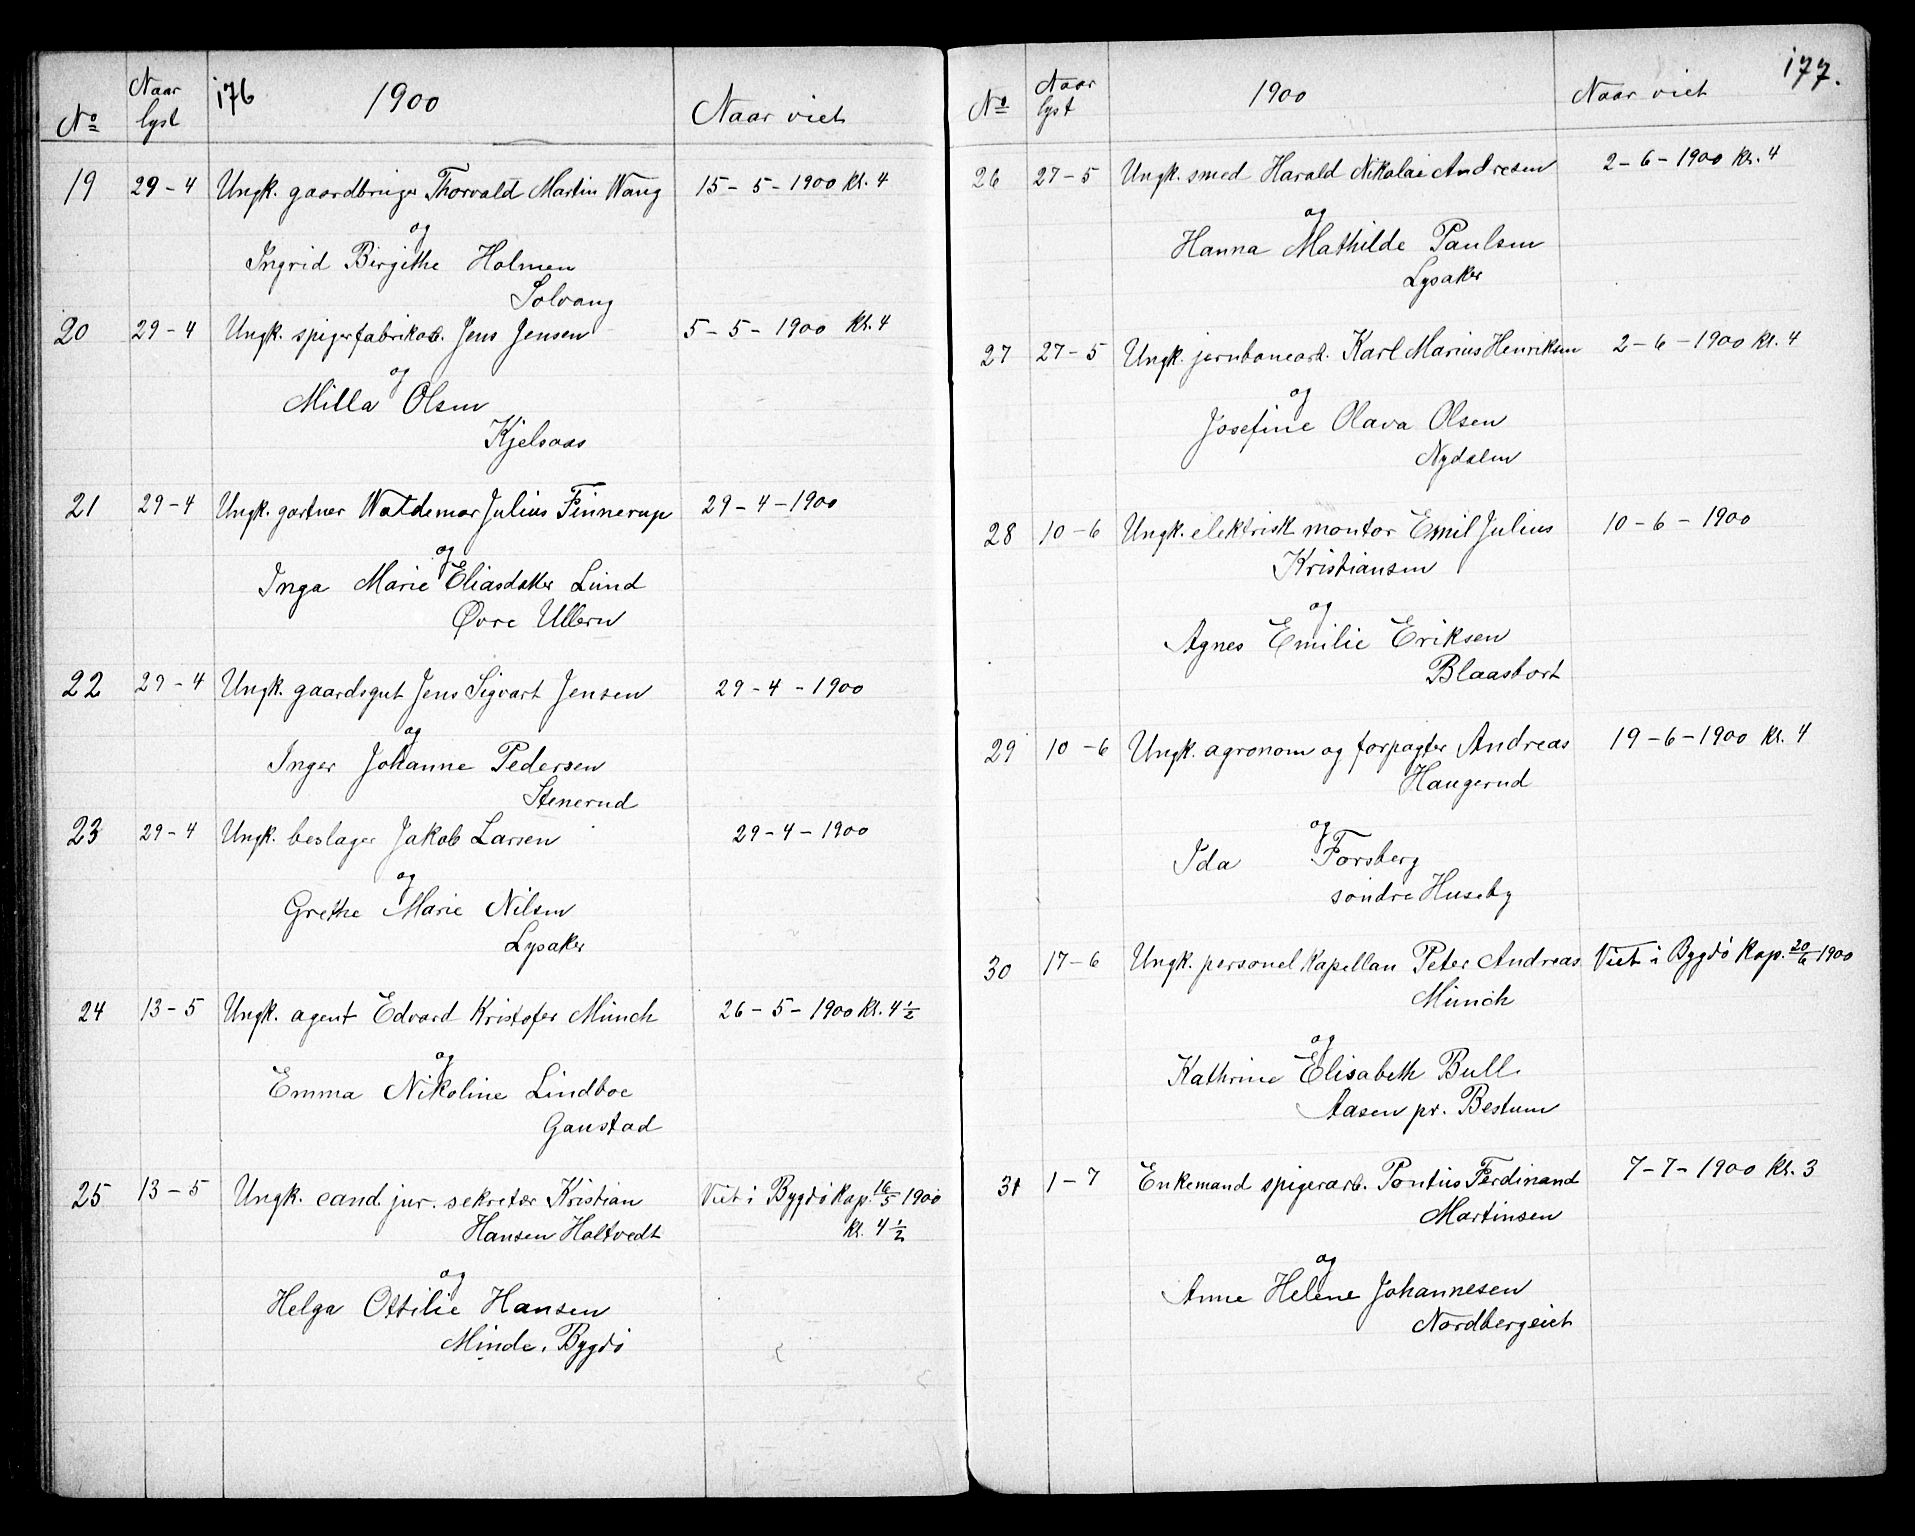 176
No Naar lyst 1900 Naar viet
19 29-4 Ungk. gaardbruger Thorvald Martin Wang 15-5-1900 Kl. 4
og
Ingrid Birgithe Holmen
Solvang
20 29-4 Ungk. spigerfabrikarb. Jens Jensen 5-5-1900 Kl. 4
og
Milla Olsen
Kjelsaas
21 29-4 Ungk. gartner Waldemar Julius Finnerup 29-4-1900
og
Inga Marie Eliasdatter Lund
Øvre Ullern
22 29-4 Ungk. gaardsgut Jens Sigvart Jensen 29-4-1900
og
Inger Johanne Pedersen
Stenerud
23 29-4 Ungk. beslager Jakob Larsen 29-4-1900
og
Grethe Marie Nilsen
Lysaker
24 13-5 Ungk. agent Edvard Kristofer Münch 26-5-1900 Kl. 4 1/2
og
Emma Nikoline Lindboe
Gaustad
25 13-5 Ungk. cand. jur. sekretær Kristian Viet i Bygdö Kap. 16/5 1900
Hansen Holtvedt Kl. 4 1/2
og
Helga Ottilie Hansen
Minde, Bygdö
177.
No Naar lyst 1900 Naar viet
26 27-5 Ungk. smed Harald Nikolai Andresen 2-6-1900 Kl. 4
og
Hanna Mathilde Paulsen
Lysaker
27 27-5 Ungk. jernbanearb. Karl Marius Henriksen 2-6-1900 Kl. 4
og
Josefine Olava Olsen
Nydalen
28 10-6 Ungk. elektrisk montör Emil Julius 10-6-1900
Kristiansen
og
Agnes Emilie Eriksen
Blaasbort
29 10-6 Ungk. agronom og forpagter Andreas 19-6-1900 Kl. 4
Haugerud
og
Ida Forsberg
söndre Huseby
30 17-6 Ungk. personel Kapellan Peter Andreas Viet i Bygdö Kap. 20/6 1900
Münch
og
Kathrine Elisabeth Bull.
Aasen pr. Bestum
31 1-7 Enkemand spigerarb. Pontius Ferdinand 7-7-1900 Kl. 3
Martinsen
og
Anne Helene Johannesen
Nordbergeiet